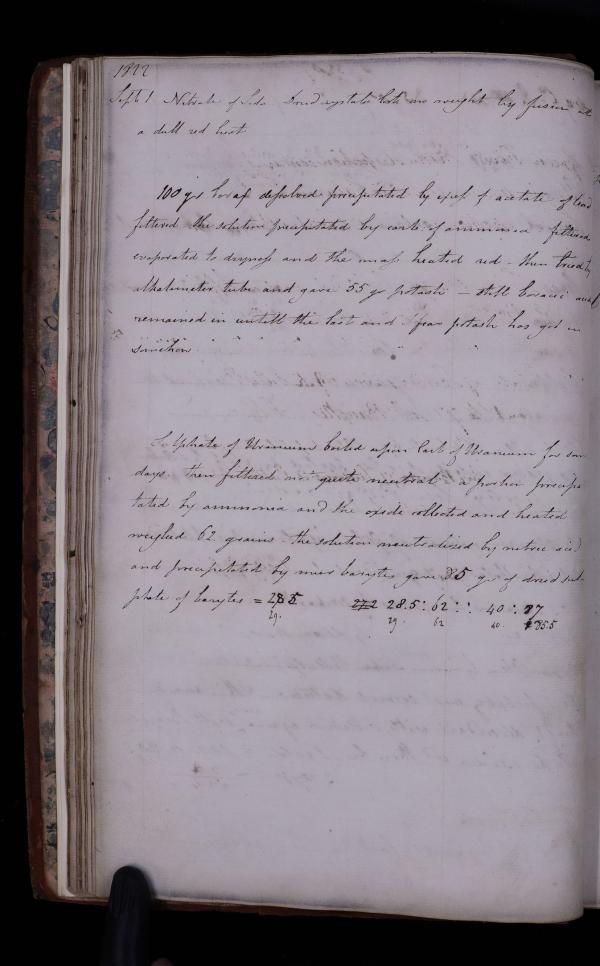 1822
Sept 1 Nitrate of Soda Dried crystals lost no weight by fusion at
a dull red heat
100 grs borax dissolved precipitated by excess of acetate of lead
filtered the solution precipitated by carb of ammonia filtered
evaporated to dryness and the mass heated red - then tried by
alkalimeter tube and gave 55 gr potash - still boracic acid
remained in untill the last and I fear potash has got in
somehow
Sulphate of Uranium boiled upon Carb of Uranium for some
days then filtered not quite neutral a portion precipi
tated by ammonia and the oxide collected and heated
weighed 62 grains the solution neutralized by nitric acid
and precipitated by mur barytes gave 85 gr of dried sul
phate of barytes = 28.5 272 28.5 : 62 :: 40 : 87
29. 29 62 40 85.5